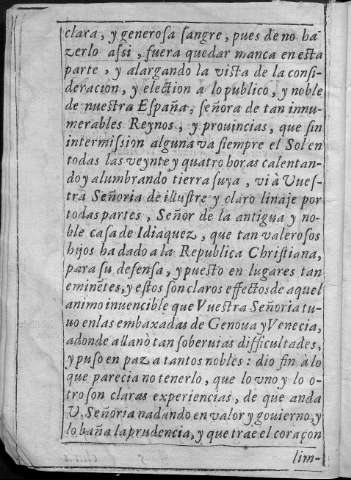 clara, y generosa sangre, pues de no ha
zerlo assi, fuera quedar manca en esta
parte, y alargando la vista de la consi-
deracion, y election a lo publico, y noble
de nuestra España, señora de tan innu-
merables Reynos, y prouincias, que sin
intermission alguna va siempre el Sol en
todas las veynte y quatro horas calentan-
do y alumbrando tierra suya, vi à Vues-
tra Señoria de illustre y claro linaje por
todas partes, Señor de la antigua y no-
ble casa de Idiaquez, que tan valerosos
hijos ha dado a la Republica Christiana,
para su defensa, y puesto en lugares tan
eminētes, y estos son claros effectos de aquel
animo inuencible que Vuestra Señoria tu-
uo en las embaxadas de Genoua y Venecia,
adonde allanò tan soberuias difficultades,
y puso en paz a tantos nobles: dio fin à lo
que parecia no tenerlo, que lo vno y lo o-
tro son claras experiencias, de que anda
V. Señoria nadando en valor y gouierno, y
lo baña la prudencia, y que trae el coraçon
lim-